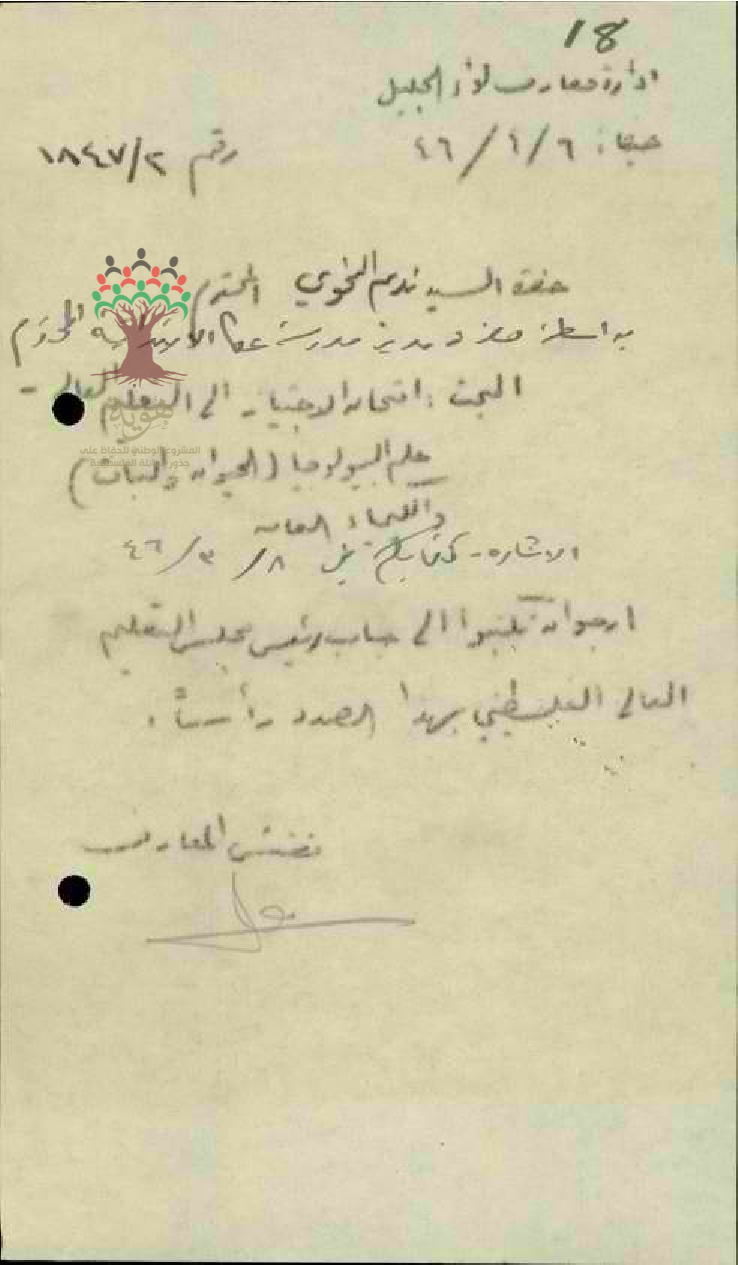 18
ادارة معارف لواء الجليل
حيفا: ٦/٤/٤٦ رقم ١٨٤٧/٢
حضرة السيد نديم النحوي المحترم
بواسطة حضرة مدير مدرسة عكا الاميرية المحترم
البحث: امتحان الاجتياز الى التعليم العالي -
علم البيولوجيا (الحيوان والنبات)
والكيمياء العامه
الاشاره - كتابكم في ٨/٣/٤٦
ارجو ان تكتبوا الى جناب رئيس مجلس التعليم
العالي الفلسطيني بهذا الصدد رأساً.
مفتش المعارف
هوية
المشروع الوطني للحفاظ على
جذور العائلة الفلسطينية